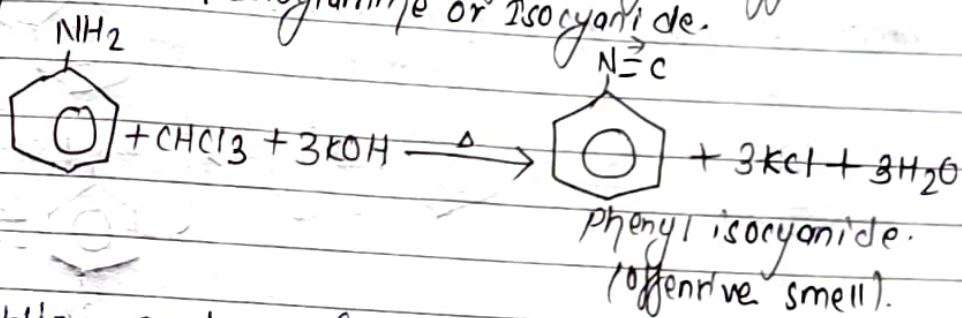 or Isocyanide.
NH2
N≡C
+ CHCl3 + 3KOH Δ + 3KCl + 3H2O
Phenyl isocyanide.
(offenrive smell).